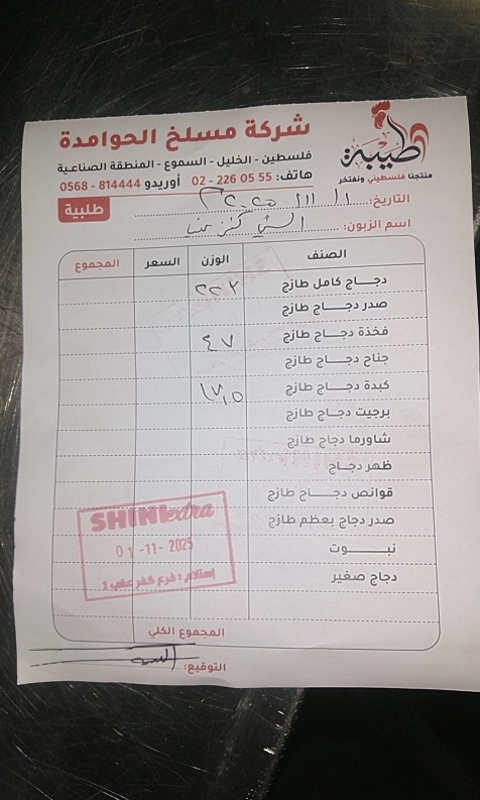 طيبة
منتجنا فلسطيني ونفتخر
شركة مسلخ الحوامدة
فلسطين - الخليل - السموع - المنطقة الصناعية
هاتف: 55 05 226 - 02 أوريدو 814444 - 0568
طلبية
التاريخ:
اسم الزبون:
الصنف الوزن السعر المجموع
دجاج كامل طازج
صدر دجاج طازج
فخذة دجاج طازج ٤٧
جناح دجاج طازج
كبدة دجاج طازج
برجيت دجاج طازج
شاورما دجاج طازج
ظهر دجاج
قوانص دجاج طازج
صدر دجاج بعظم طازج
نبوت
دجاج صغير
SHINI extra
01-11-2025
إستلام : فرع كفر عقب 1
المجموع الكلي
التوقيع: